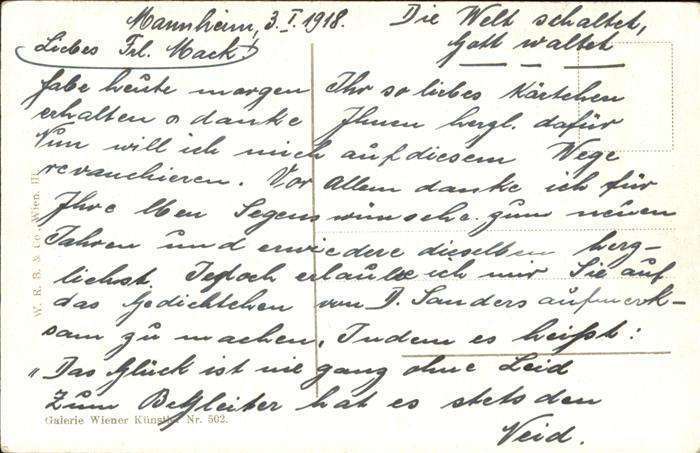 Mannheim, 3. I. 1918.
Die Welt schaltet,
Gott waltet
Liebes Frl. Mack!
Habe heute morgen Ihr so liebes Kärtchen
erhalten & danke Ihnen hergl. dafür
Nun will ich mich auf diesem Wege
revanchieren. Vor Allem danke ich für
Ihre lben Segenswünsche zum neuen
Jahren und erwiedere dieselben herg-
lichst. Jedoch erlaube ich mir Sie auf
das Gedichtchen von D. Sanders aufmerk-
sam zu machen, Indem es heißt:
"Das Glück ist nie ganz ohne Leid
Zum Begleiter hat es stets den
Neid.
W. R. B. & Co. Wien. III
Galerie Wiener Künstler Nr. 502.